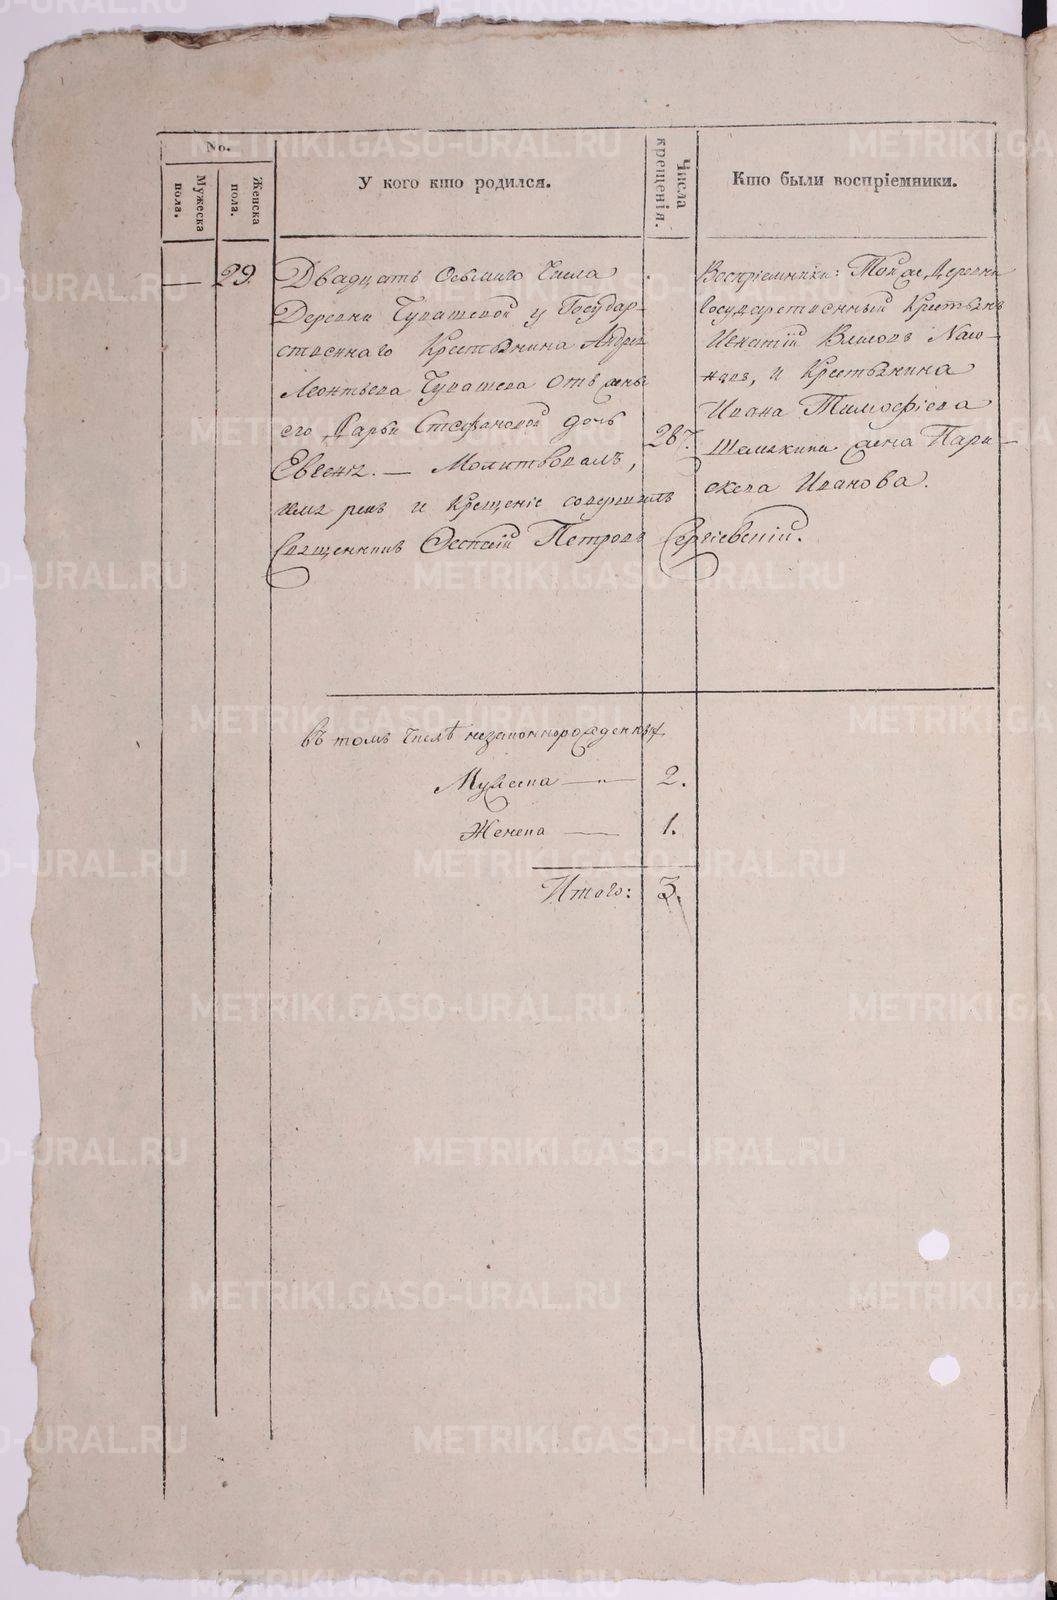 No.
Мужеска пола.
Женска пола.
У кого кто родился.
Числа крещенія.
Кто были воспріемники.
— 29.
Двадцать Осьмаго Числа
Деревни Чувашевой у Государ-
ственнаго Крестьянина Андрея
Леонтьева Чувашева отъ жены
его Дарьи Стефановой дочь
Евгенія. — Молитвовалъ,
имя рекъ и Крещеніе совершилъ
Священникъ Петровъ Сергіевскій.
28.
Воспріемники: Той же Деревни
Государственный Крестьянъ
Игнатій Власовъ
и Крестьянина
Ивана Тимофѣева
жена Пара-
скева Иванова.
въ томъ Числѣ незаконнорожденныхъ
Мужеска — „ — 2.
Женска — 1.
Итого: 3.
METRIKI.GASO-URAL.RU